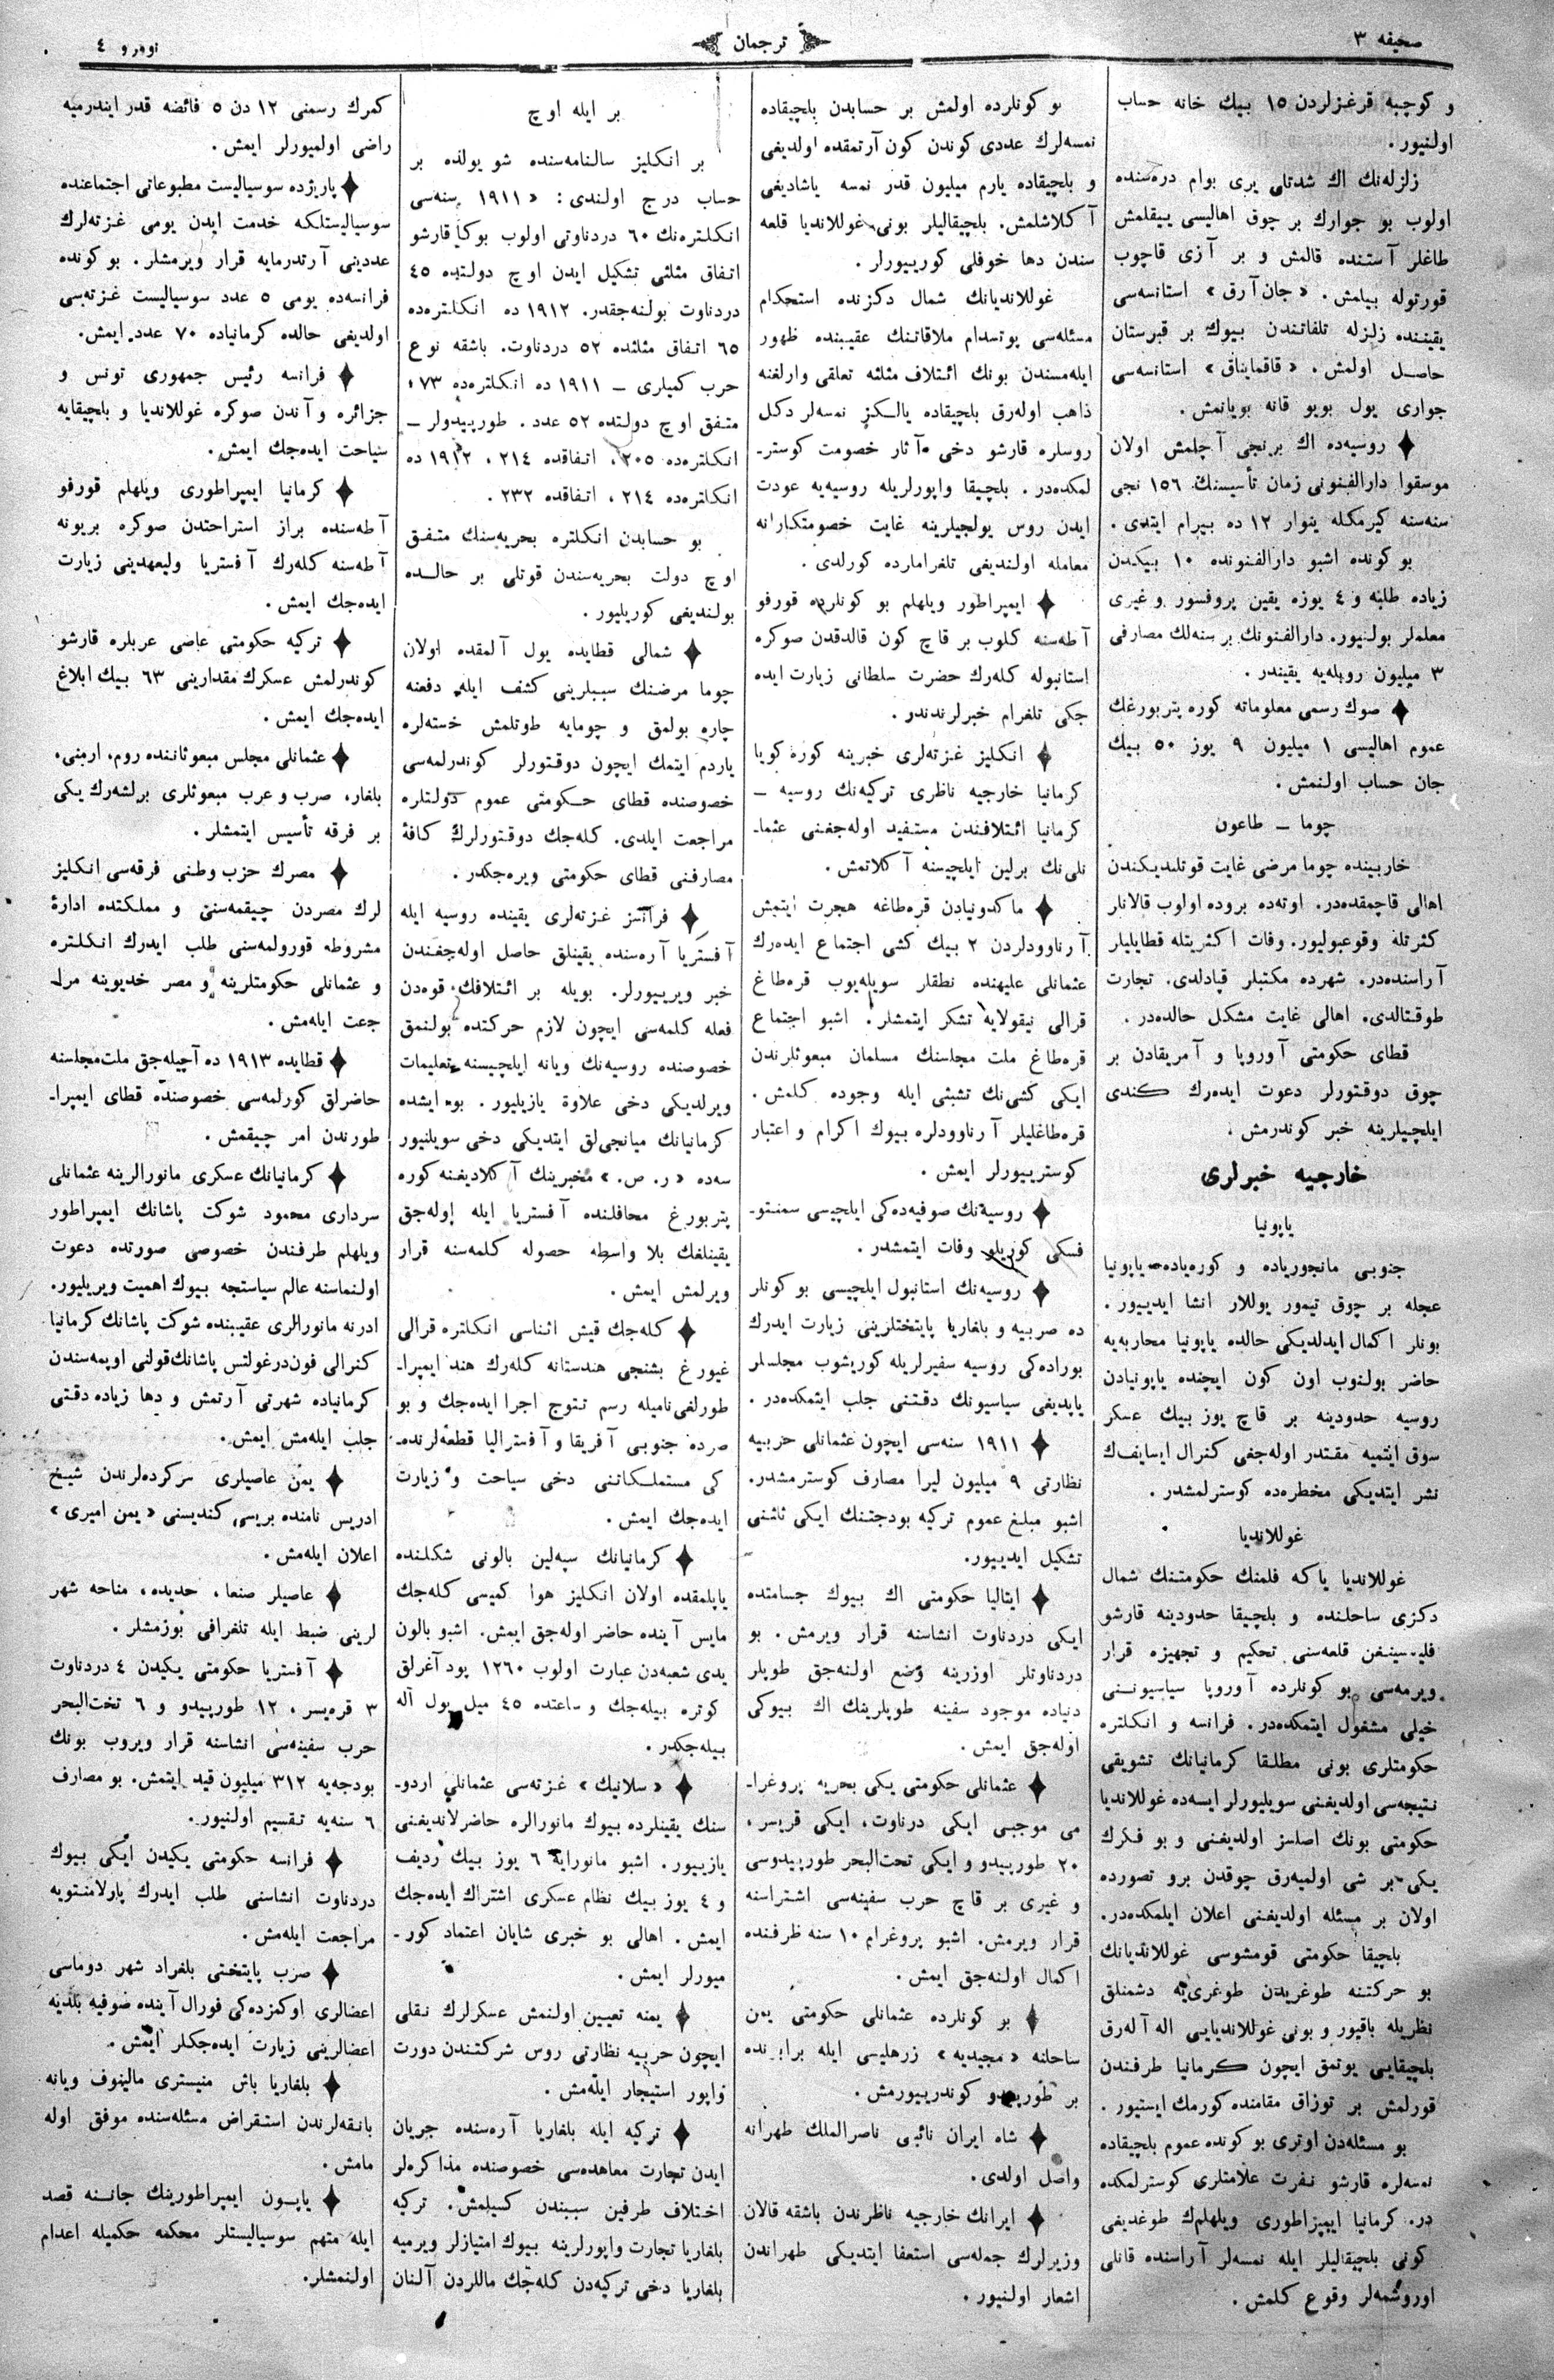 صحیفه ۳
ترجمان
نومرو ٤
و كوچبه قرغزلردن ۱٥ بیك خانه حساب
اولنیور.
زلزله‌نك اك شدتلی یری بوام دره‌سنده
اولوب بو جوارك بر چوق اهالیسی ییقلمش
طاغلر آستنده قالمش و بر آزی قاچوب
قورتوله بیلمش. «جان آرق» استانسه‌سی
یقیننده زلزله تلفاتندن بیوك بر قبرستان
حاصل اولمش. استانسه‌سی
جواری یول بویو قانه بویانمش.
روسیه‌ده اك برنجی آچلمش اولان
موسقوا دارالفنونی زمان تأسیسنك ۱٥٦ نجی
سنه‌سنه كیرمكله ینوار ۱۲ ده بیرام ایتدی.
بو كونده اشبو دارالفنونده ۱۰ بیكدن
زیاده طلبه و ٤ یوزه یقین پروفسور و غیری
معلملر بولنیور. دارالفنونك بر سنه‌لك مصارفی
۳ میلیون روبله‌یه یقیندر.
صوك رسمی معلوماته كوره پتربورغك
عموم اهالیسی ۱ میلیون ۹ یوز ٥۰ بیك
جان حساب اولنمش.
چوما – طاعون
خاربینده چوما مرضی غایت قوتلندیكندن
اهالی قاچمقده‌در. اوته‌ده بروده اولوب قالانلر
كثرتله وقوعبولیور. وفات اكثریتله قطایلیلر
آراسنده‌در. شهرده مكتبلر قپادلدی. تجارت
طوقتالدی. اهالی غایت مشكل حالده‌در.
قطای حكومتی آوروپا و آمریقادن بر
چوق دوقتورلر دعوت ایده‌رك كندی
ایلچیلرینه خبر كوندرمش.
خارجیه خبرلری
یاپونیا
جنوبی مانجوریاده و كوره‌یاده یاپونیا
عجله بر چوق تیمور یوللار انشا ایدییور.
بونلر اكمال ایدلدیكی حالده یاپونیا محاربه‌یه
حاضر بولنوب اون كون ایچنده یاپونیادن
روسیه حدودینه بر قاچ یوز بیك عسكر
سوق ایتمیه مقتدر اوله‌جغی كنرال
نشر ایتدیكی مخطره‌ده كوسترلمشدر.
غوللاندیا
غوللاندیا یا كه فلمنك حكومتنك شمال
دكزی ساحلنده و بلچیقا حدودینه قارشو
قلعه‌سنی تحكیم و تجهیزه قرار
ویرمه‌سی بو كونلرده آوروپا سیاسیوننی
خیلی مشغول ایتمكده‌در. فرانسه و انكلتره
حكومتلری بونی مطلقا كرمانیانك تشویقی
نتیجه‌سی اولدیغنی سویلیورلر ایسه‌ده غوللاندیا
حكومتی بونك اصلسز اولدیغنی و بو فكرك
یكی بر شی اولمیه‌رق چوقدن برو تصورده
اولان بر مسئله اولدیغنی اعلان ایلمكده‌در.
بلچیقا حكومتی قومشوسی غوللاندیانك
بو حركتنه طوغریدن طوغری‌یه دشمنلق
نظریله باقیور و بونی غوللاندیایی اله آله‌رق
بلچیقایی یوتمق ایچون كرمانیا طرفندن
قورلمش بر توزاق مقامنده كورمك ایستیور.
بو مسئله‌دن اوتری بو كونده عموم بلچیقاده
نمسه‌لره قارشو نفرت علامتلری كوسترلمكده
در. كرمانیا ایمپراطوری ویلهلم‌ك طوغدیغی
كونی بلچیقالیلر ایله نمسه‌لر آراسنده قانلی
اوروشمه‌لر وقوع كلمش.
بو كونلرده اولمش بر حسابدن بلچیقاده
نمسه‌لرك عددی كوندن كون آرتمقده اولدیغی
و بلچیقاده یارم میلیون قدر نمسه یاشادیغی
آكلاشلمش. بلچیقالیلر بونی غوللاندیا قلعه
سندن دها خوفلی كورییورلر.
غوللاندیانك شمال دكزنده استحكام
مسئله‌سی پوتسدام ملاقاتنك عقیبنده ظهور
ایله‌مسندن بونك ائتلاف مثلثه تعلقی وارلغنه
ذاهب اوله‌رق بلچیقاده یالكز نمسه‌لر دكل
روسلره قارشو دخی آثار خصومت كوستر-
لمكده‌در. بلچیقا واپورلریله روسیه‌یه عودت
ایدن روس یولجیلرینه غایت خصومتكارانه
معامله اولندیغی تلغرافلرده كورلدی.
ایمپراطور ویلهلم بو كونلرده قورفو
آطه‌سنه كلوب بر قاچ كون قالدقدن صوكره
استانبوله كله‌رك حضرت سلطانی زیارت ایده
جكی تلغرام خبرلرندندر.
انكلیز غزته‌لری خبرینه كوره كویا
كرمانیا خارجیه ناظری تركیه‌نك روسیه –
كرمانیا ائتلافندن مستفید اوله‌جغنی عثما-
نلی‌نك برلین ایلچیسنه آكلاتمش.
ماكدونیادن قره‌طاغه هجرت ایتمش
آرناوودلردن ۲ بیك كشی اجتماع ایده‌رك
عثمانلی علیهنده نطقلر سویله‌یوب قره‌طاغ
قرالی نیقولایه تشكر ایتمشلر. اشبو اجتماع
قره‌طاغ ملت مجلسنك مسلمان مبعوثلرندن
ایكی كشی‌نك تشبثی ایله وجوده كلمش.
قره‌طاغلیلر آرناوودلره بیوك اكرام و اعتبار
كوسترییورلر ایمش.
روسیه‌نك صوفیه‌ده‌كی ایلچیسی سمنتو-
فسكی وفات ایتمشدر.
روسیه‌نك استانبول ایلچیسی بو كونلر
ده صربیه و بلغاریا پایتختلرینی زیارت ایدرك
بوراده‌كی روسیه سفیرلریله كوریشوب مجلسلر
یاپدیغی سیاسیونك دقتنی جلب ایتمكده‌در.
۱۹۱۱ سنه‌سی ایچون عثمانلی حربیه
نظارتی ۹ میلیون لیرا مصارف كوسترمشدر.
اشبو مبلغ عموم تركیه بودجتنك ایكی ثلثنی
تشكیل ایدییور.
ایتالیا حكومتی اك بیوك جسامتده
ایكی دردناوت انشاسنه قرار ویرمش. بو
دردناوتلر اوزرینه وضع اولنه‌جق طوپلر
دنیاده موجود سفینه طوپلرینك اك بیوكی
اوله‌جق ایمش.
عثمانلی حكومتی یكی بحریه پروغرا-
می موجبی ایكی درناوت، ایكی قریسر،
۲۰ طورپیدو و ایكی تحت‌البحر طورپیدوسی
و غیری بر قاچ حرب سفینه‌سی اشتراسنه
قرار ویرمش. اشبو پروغرام ۱۰ سنه ظرفنده
اكمال اولنه‌جق ایمش.
بو كونلرده عثمانلی حكومتی یمن
ساحلنه «مجیدیه» زرهلیسی ایله برابرنده
بر طورپیدو كوندرییورمش.
شاه ایران نائبی ناصرالملك طهرانه
واصل اولدی.
ایرانك خارجیه ناظرندن باشقه قالان
وزیرلرك جمله‌سی استعفا ایتدیكی طهراندن
اشعار اولنیور.
بر ایله اوچ
بر انكلیز سالنامه‌سنده شو یولده بر
حساب درج اولندی: «۱۹۱۱ سنه‌سی
انكلتره‌نك ٦۰ دردناوتی اولوب بوكا قارشو
اتفاق مثلثی تشكیل ایدن اوچ دولتده ٤٥
دردناوت بولنه‌جقدر. ۱۹۱۲ ده انكلتره‌ده
٦٥ اتفاق مثلثده ٥۲ دردناوت. باشقه نوع
حرب كمیلری – ۱۹۱۱ ده انكلتره‌ده ۷۳،
متفق اوچ دولتده ٥۲ عدد. طورپیدولر –
انكلتره‌ده ۲۰٥، اتفاقده ۲۱٤، ۱۹۱۲ ده
انكلتره‌ده ۲۱٤، اتفاقده ۲۳۲.
بو حسابدن انكلتره بحریه‌سنك متفق
اوچ دولت بحریه‌سندن قوتلی بر حالده
بولندیغی كوریلیور.
شمالی قطایده یول آلمقده اولان
چوما مرضنك سببلرینی كشف ایله، دفعنه
چاره بولمق و چومایه طوتلمش خسته‌لره
یاردم ایتمك ایچون دوقتورلر كوندرلمه‌سی
خصوصنده قطای حكومتی عموم دولتلره
مراجعت ایلدی. كله‌جك دوقتورلرك كافۀ
مصارفنی قطای حكومتی ویره‌جكدر.
فرانسز غزته‌لری یقینده روسیه ایله
آفستریا آره‌سنده یقینلق حاصل اوله‌جغندن
خبر ویرییورلر. بویله بر ائتلافك قوه‌دن
فعله كلمه‌سی ایچون لازم حركتده بولنمق
خصوصنده روسیه‌نك ویانه ایلچیسنه تعلیمات
ویرلدیكی دخی علاوة یازیلیور. بو ایشده
كرمانیانك میانجی‌لق ایتدیكی دخی سویلنیور
سه‌ده «ر. ص.» مخبرینك آكلادیغنه كوره
پتربورغ محافلنده آفستریا ایله اوله‌جق
یقینلغك بلا واسطه حصوله كلمه‌سنه قرار
ویرلمش ایمش.
كله‌جك قیش اثناسی انكلتره قرالی
غیورغ بشنجی هندستانه كله‌رك هند ایمپرا-
طورلغی نامیله رسم تتوج اجرا ایده‌جك و بو
صرده جنوبی آفریقا و آفسترالیا قطعه‌لرنده-
كی مستملكاتنی دخی سیاحت و زیارت
ایده‌جك ایمش.
كرمانیانك سپه‌لین بالونی شكلنده
یاپلمقده اولان انكلیز هوا كمیسی كله‌جك
مایس آینده حاضر اوله‌جق ایمش. اشبو بالون
یدی شعبه‌دن عبارت اولوب ۱۲٦۰ پود آغرلق
كوتره بیله‌جك و ساعتده ٤٥ میل یول آله
بیله‌جكدر.
«سلانیك» غزته‌سی عثمانلی اردو-
سنك یقینلرده بیوك مانورالره حاضرلاندیغنی
یازییور. اشبو مانورایه ٦ یوز بیك ردیف
و ٤ یوز بیك نظام عسكری اشتراك ایده‌جك
ایمش. اهالی بو خبری شایان اعتماد كور-
میورلر ایمش.
یمنه تعیین اولنمش عسكرلرك نقلی
ایچون حربیه نظارتی روس شركتندن دورت
واپور استیجار ایله‌مش.
تركیه ایله بلغاریا آره‌سنده جریان
ایدن تجارت معاهده‌سی خصوصنده مذاكره‌لر
اختلاف طرفین سببندن كسیلمش. تركیه
بلغاریا تجارت واپورلرینه بیوك امتیازلر ویرمیه
بلغاریا دخی تركیه‌دن كله‌جك ماللردن آلنان
كمرك رسمنی ۱۲ دن ٥ فائضه قدر ایندرمیه
راضی اولمیورلر ایمش.
پاریژده سوسیالیست مطبوعاتی اجتماعنده
سوسیالیستلكه خدمت ایدن یومی غزته‌لرك
عددینی آرتدرمایه قرار ویرمشلر. بو كونده
فرانسه‌ده یومی ٥ عدد سوسیالیست غزته‌سی
اولدیغی حالده كرمانیاده ۷۰ عدد ایمش.
فرانسه رئیس جمهوری تونس و
جزائره و آندن صوكره غوللاندیا و بلچیقایه
سیاحت ایده‌جك ایمش.
كرمانیا ایمپراطوری ویلهلم قورفو
آطه‌سنده براز استراحتدن صوكره بریونه
آطه‌سنه كله‌رك آفستریا ولیعهدینی زیارت
ایده‌جك ایمش.
تركیه حكومتی عاصی عربلره قارشو
كوندرلمش عسكرك مقدارینی ٦۳ بیك ابلاغ
ایده‌جك ایمش.
عثمانلی مجلس مبعوثاننده روم، ارمنی،
بلغار، صرب و عرب مبعوثلری برلشه‌رك یكی
بر فرقه تأسیس ایتمشلر.
مصرك حزب وطنی فرقه‌سی انكلیز
لرك مصردن چیقمه‌سنی و مملكتده ادارۀ
مشروطه قورولمه‌سنی طلب ایدرك انكلتره
و عثمانلی حكومتلرینه و مصر خدیوینه مرا-
جعت ایله‌مش.
قطایده ۱۹۱۳ ده آچیله‌جق ملت مجلسنه
حاضرلق كورلمه‌سی خصوصنده قطای ایمپرا-
طورندن امر چیقمش.
كرمانیانك عسكری مانورالرینه عثمانلی
سرداری محمود شوكت پاشانك ایمپراطور
ویلهلم طرفندن خصوصی صورتده دعوت
اولنماسنه عالم سیاستجه بیوك اهمیت ویریلیور.
ادرنه مانورالری عقیبنده شوكت پاشانك كرمانیا
كنرالی فون‌درغولتس پاشانك قولنی اوپمه‌سندن
كرمانیاده شهرتی آرتمش و دها زیاده دقتی
جلب ایله‌مش ایمش.
یمن عاصیلری سركرده‌لرندن شیخ
ادریس نامنده بریسی كندیسنی «یمن امیری»
اعلان ایله‌مش.
عاصیلر صنعا، حدیده، مناحه شهر
لرینی ضبط ایله تلغرافی بوزمشلر.
آفستریا حكومتی یكیدن ٤ دردناوت
۳ قره‌یسر، ۱۲ طورپیدو و ٦ تحت‌البحر
حرب سفینه‌سی انشاسنه قرار ویروب بونك
بودجه‌یه ۳۱۲ میلیون قید ایتمش. بو مصارف
٦ سنه‌یه تقسیم اولنیور.
فرانسه حكومتی یكیدن ایكی بیوك
دردناوت انشاسنی طلب ایدرك پارلامنتویه
مراجعت ایله‌مش.
صرب پایتختی بلغراد شهر دوماسی
اعضالری اوكمزده‌كی فورال آینده صوفیه بلدیه
اعضالرینی زیارت ایده‌جكلر ایمش.
بلغاریا باش منیستری مالینوف ویانه
بانقه‌لرندن استقراض مسئله‌سنده موفق اوله
مامش.
یاپون ایمپراطورینك جاننه قصد
ایله متهم سوسیالیستلر محكمه حكمیله اعدام
اولنمشلر.